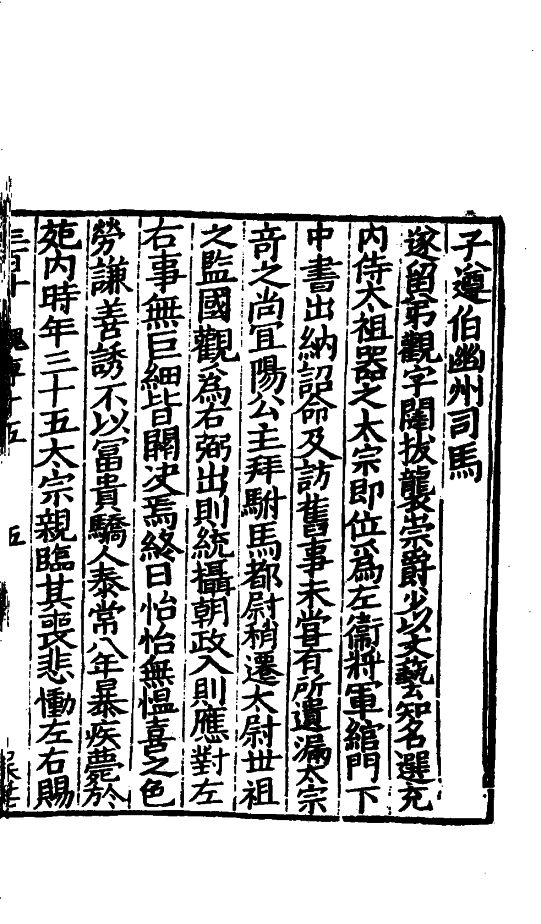 子遵伯幽州司馬
遂留弟觀字闥拔襲崇爵少以文藝知名選充
內侍太祖器之太宗即位爲左衛將軍綰門下
中書出納詔命及訪舊事未嘗有所遺漏太宗
奇之尚宜陽公主拜駙馬都尉稍遷太尉世祖
之監國觀爲右弼出則統攝朝政入則應對左
右事無巨細皆關决焉終日怡怡無慍喜之色
勞謙善誘不以冨貴驕人泰常八年暴疾薨於
苑內時年三十五太宗親臨其喪悲慟左右賜
三百十 魏傳十五 五